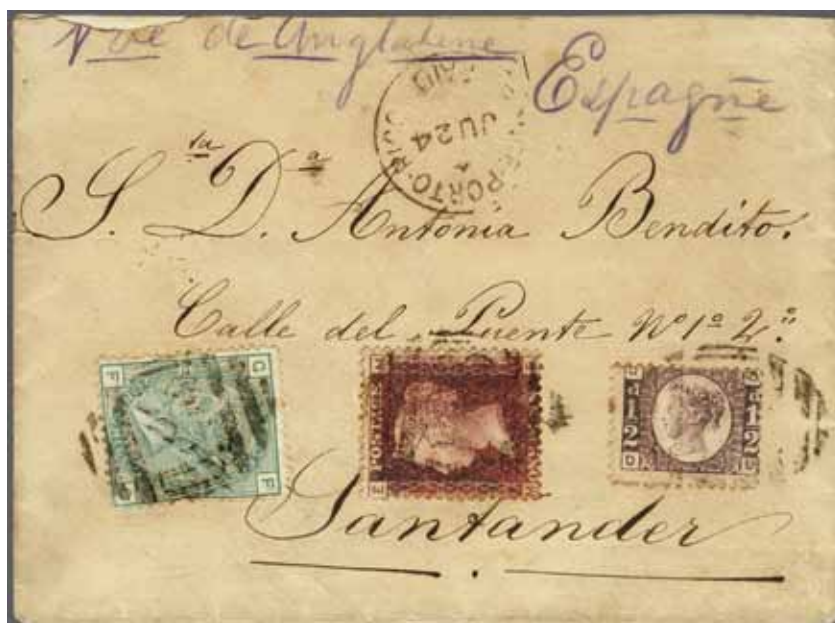 Voie de Anglaterre
Espagne
PORTO-RICO
PAID
JU 24
S.ra D.a Antonia Bendito.
Calle del Puente Nº 1º 2º
POSTAGE
Santander